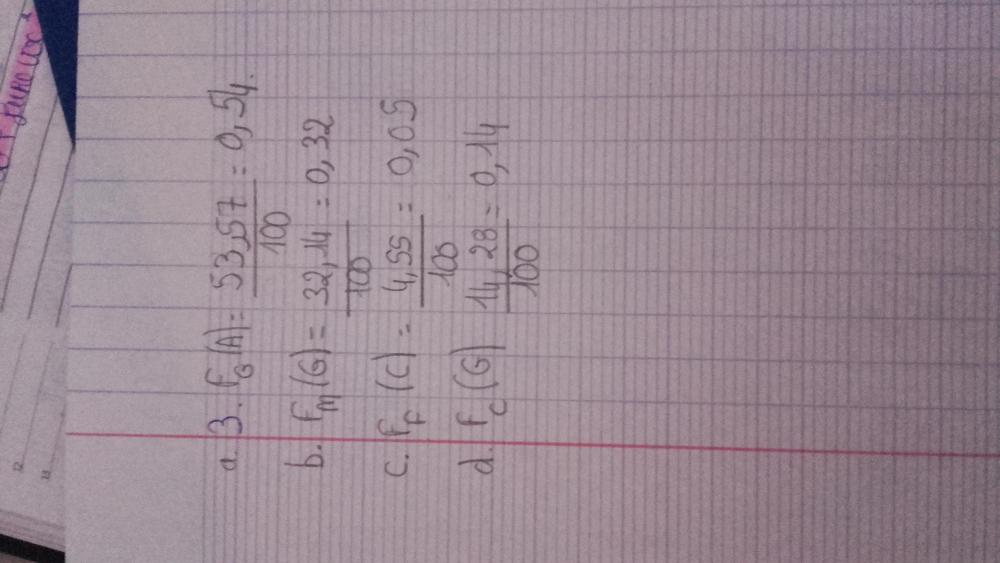 a. 3. f_G(A) = 53,57/100 = 0,54.
b. f_M(G) = 32,14/100 = 0,32
c. f_F(C) = 4,55/100 = 0,05
d. f_C(G) 14,28/100 = 0,14